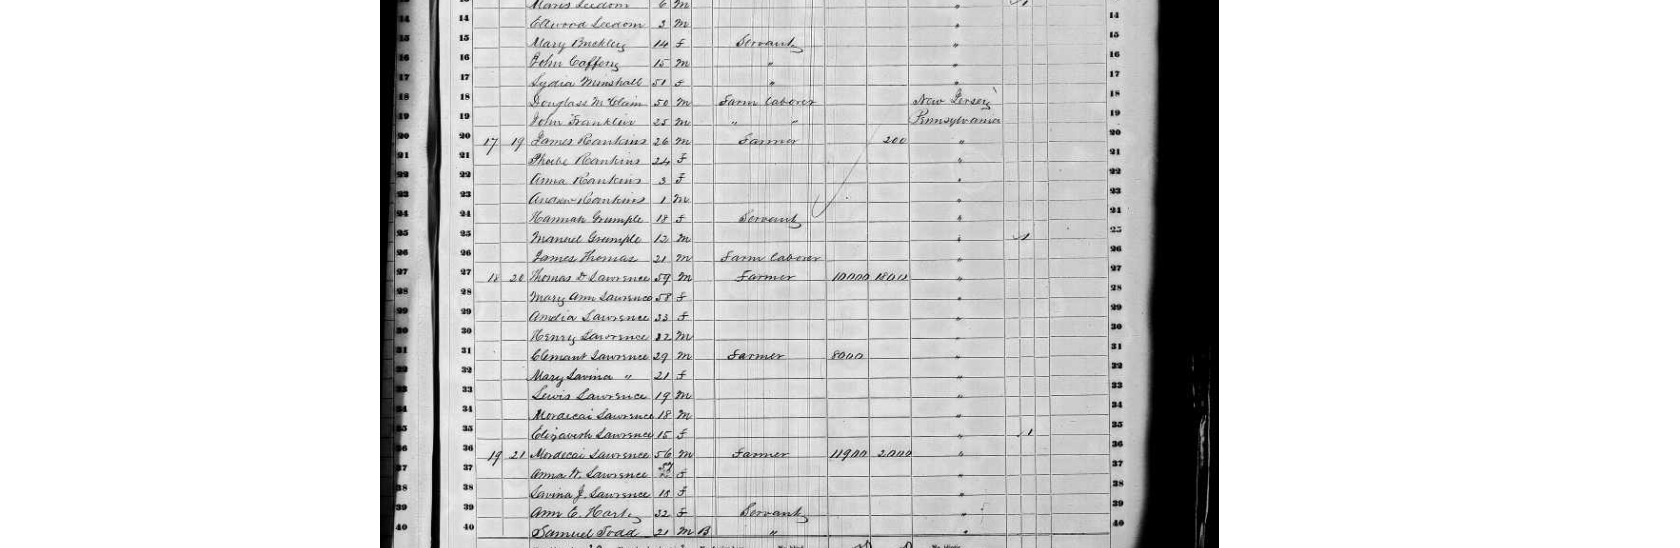 6 m
14 Ellwood Leedom 3 m " 14
15 Mary Buckley 14 f Servant " 15
16 John Caffery 15 m " " 16
17 Lydia Minshall 51 f " " 17
18 Douglass McClain 50 m Farm Laborer New Jersey 18
19 John Franklin 25 m " " Pennsylvania 19
20 17 19 James Rankins 26 m Farmer 200 " 20
21 Phoebe Rankins 24 f " 21
22 Anna Rankins 3 f " 22
23 Andrew Rankins 1 m " 23
24 Hannah Grumple 18 f Servant " 24
25 Manuel Grumple 12 m " 1 25
26 James Thomas 21 m Farm Laborer " 26
27 18 20 Thomas D Lawrence 59 m Farmer 10000 1800 " 27
28 Mary Ann Lawrence 58 f " 28
29 Amelia Lawrence 33 f " 29
30 Henry Lawrence 32 m " 30
31 Clemant Lawrence 29 m Farmer 8000 " 31
32 Mary Lavina " 21 f " 32
33 Lewis Lawrence 19 m " 33
34 Mordecai Lawrence 18 m " 34
35 Elizabeth Lawrence 15 f " 1 35
36 19 21 Mordecai Lawrence 56 m Farmer 11900 2000 " 36
37 Anna W. Lawrence f " 37
38 Lavina J. Lawrence 18 f " 38
39 Ann E. 32 f Servant " 39
40 Samuel Todd 21 m B " " 40